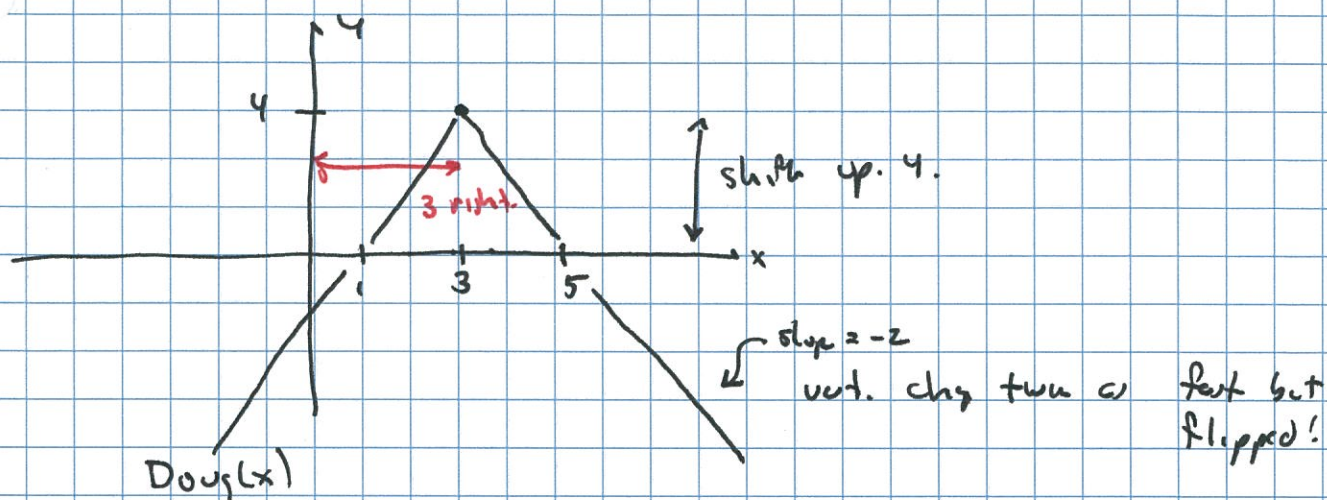 y
4
shift up. 4.
3 right.
x
1 3 5
slope = -2
vert. chg twice as fast but
flipped!
Doug(x)